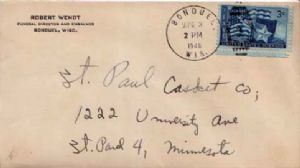 ROBERT WENDT
FUNERAL DIRECTOR AND EMBALMER
BONDUEL, WISC.
BONDUEL,
2 PM
1946
WIS.
3¢
St. Paul Casket Co;
1222 University Ave
St. Paul 4, Minnesota